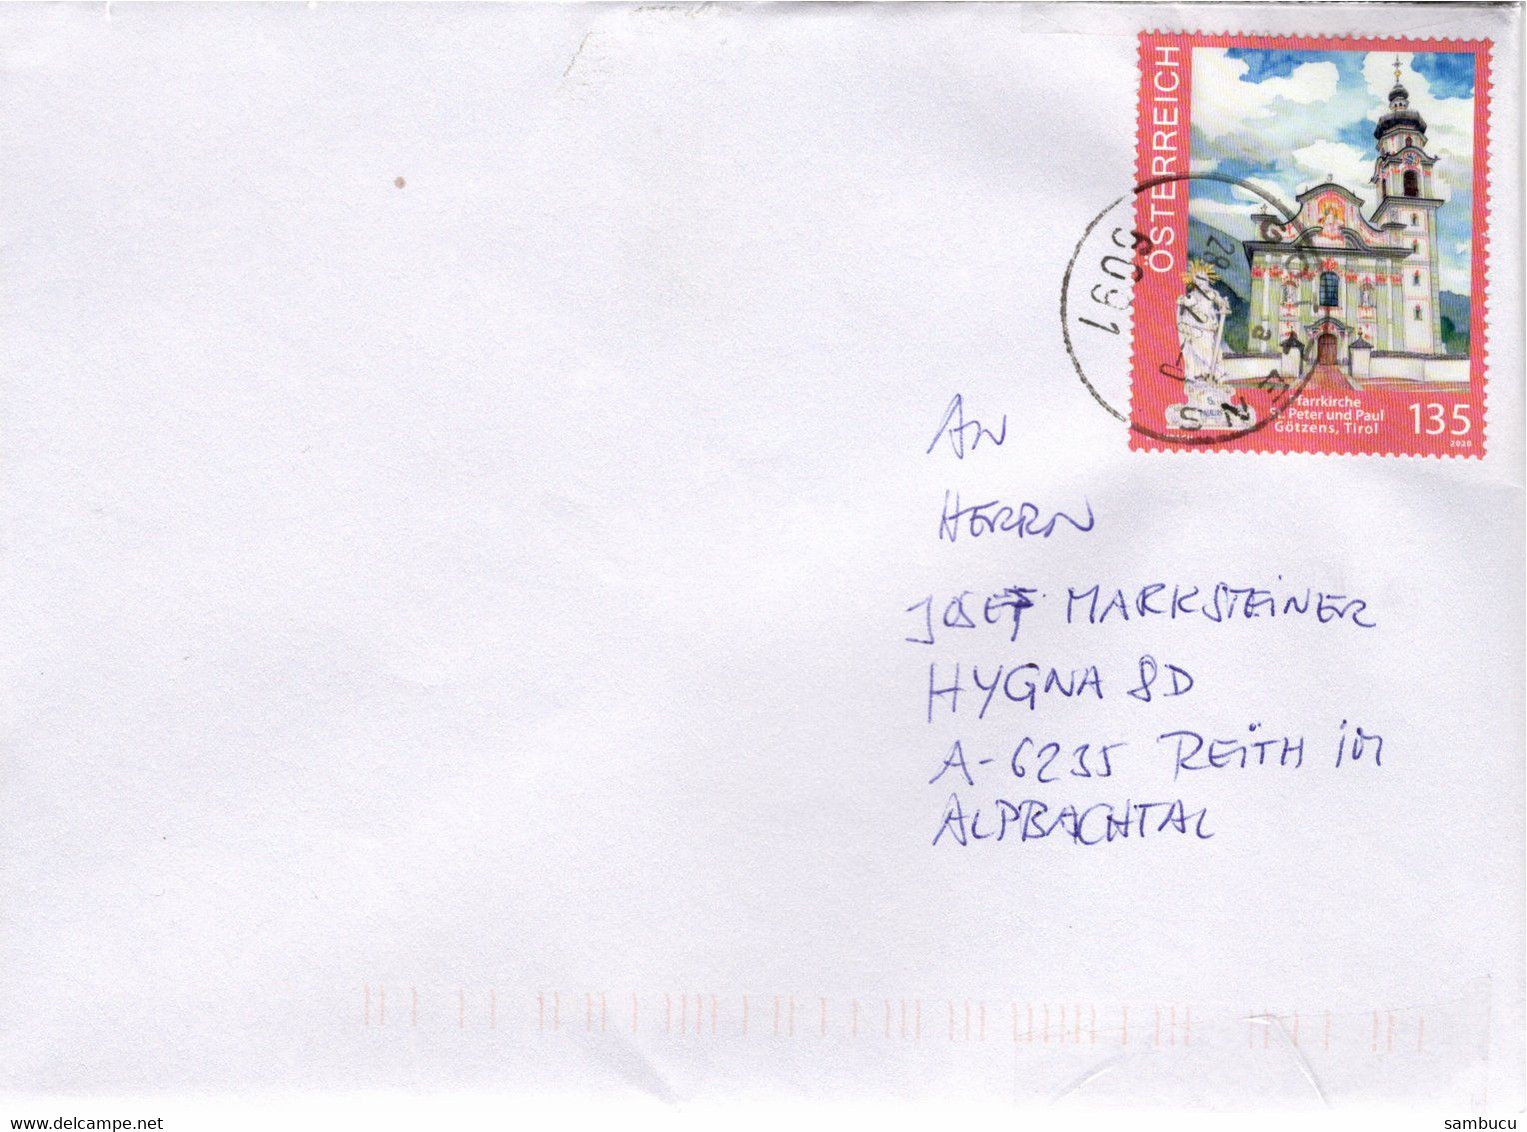 ÖSTERREICH
Pfarrkirche
St. Peter und Paul
Götzens, Tirol
135
2020
6091
GÖTZENS
a
AN
HERRN
JOSEF MARKSTEINER
HYGNA 8D
A-6235 REITH IM
ALPBACHTAL
www.delcampe.net
sambucu